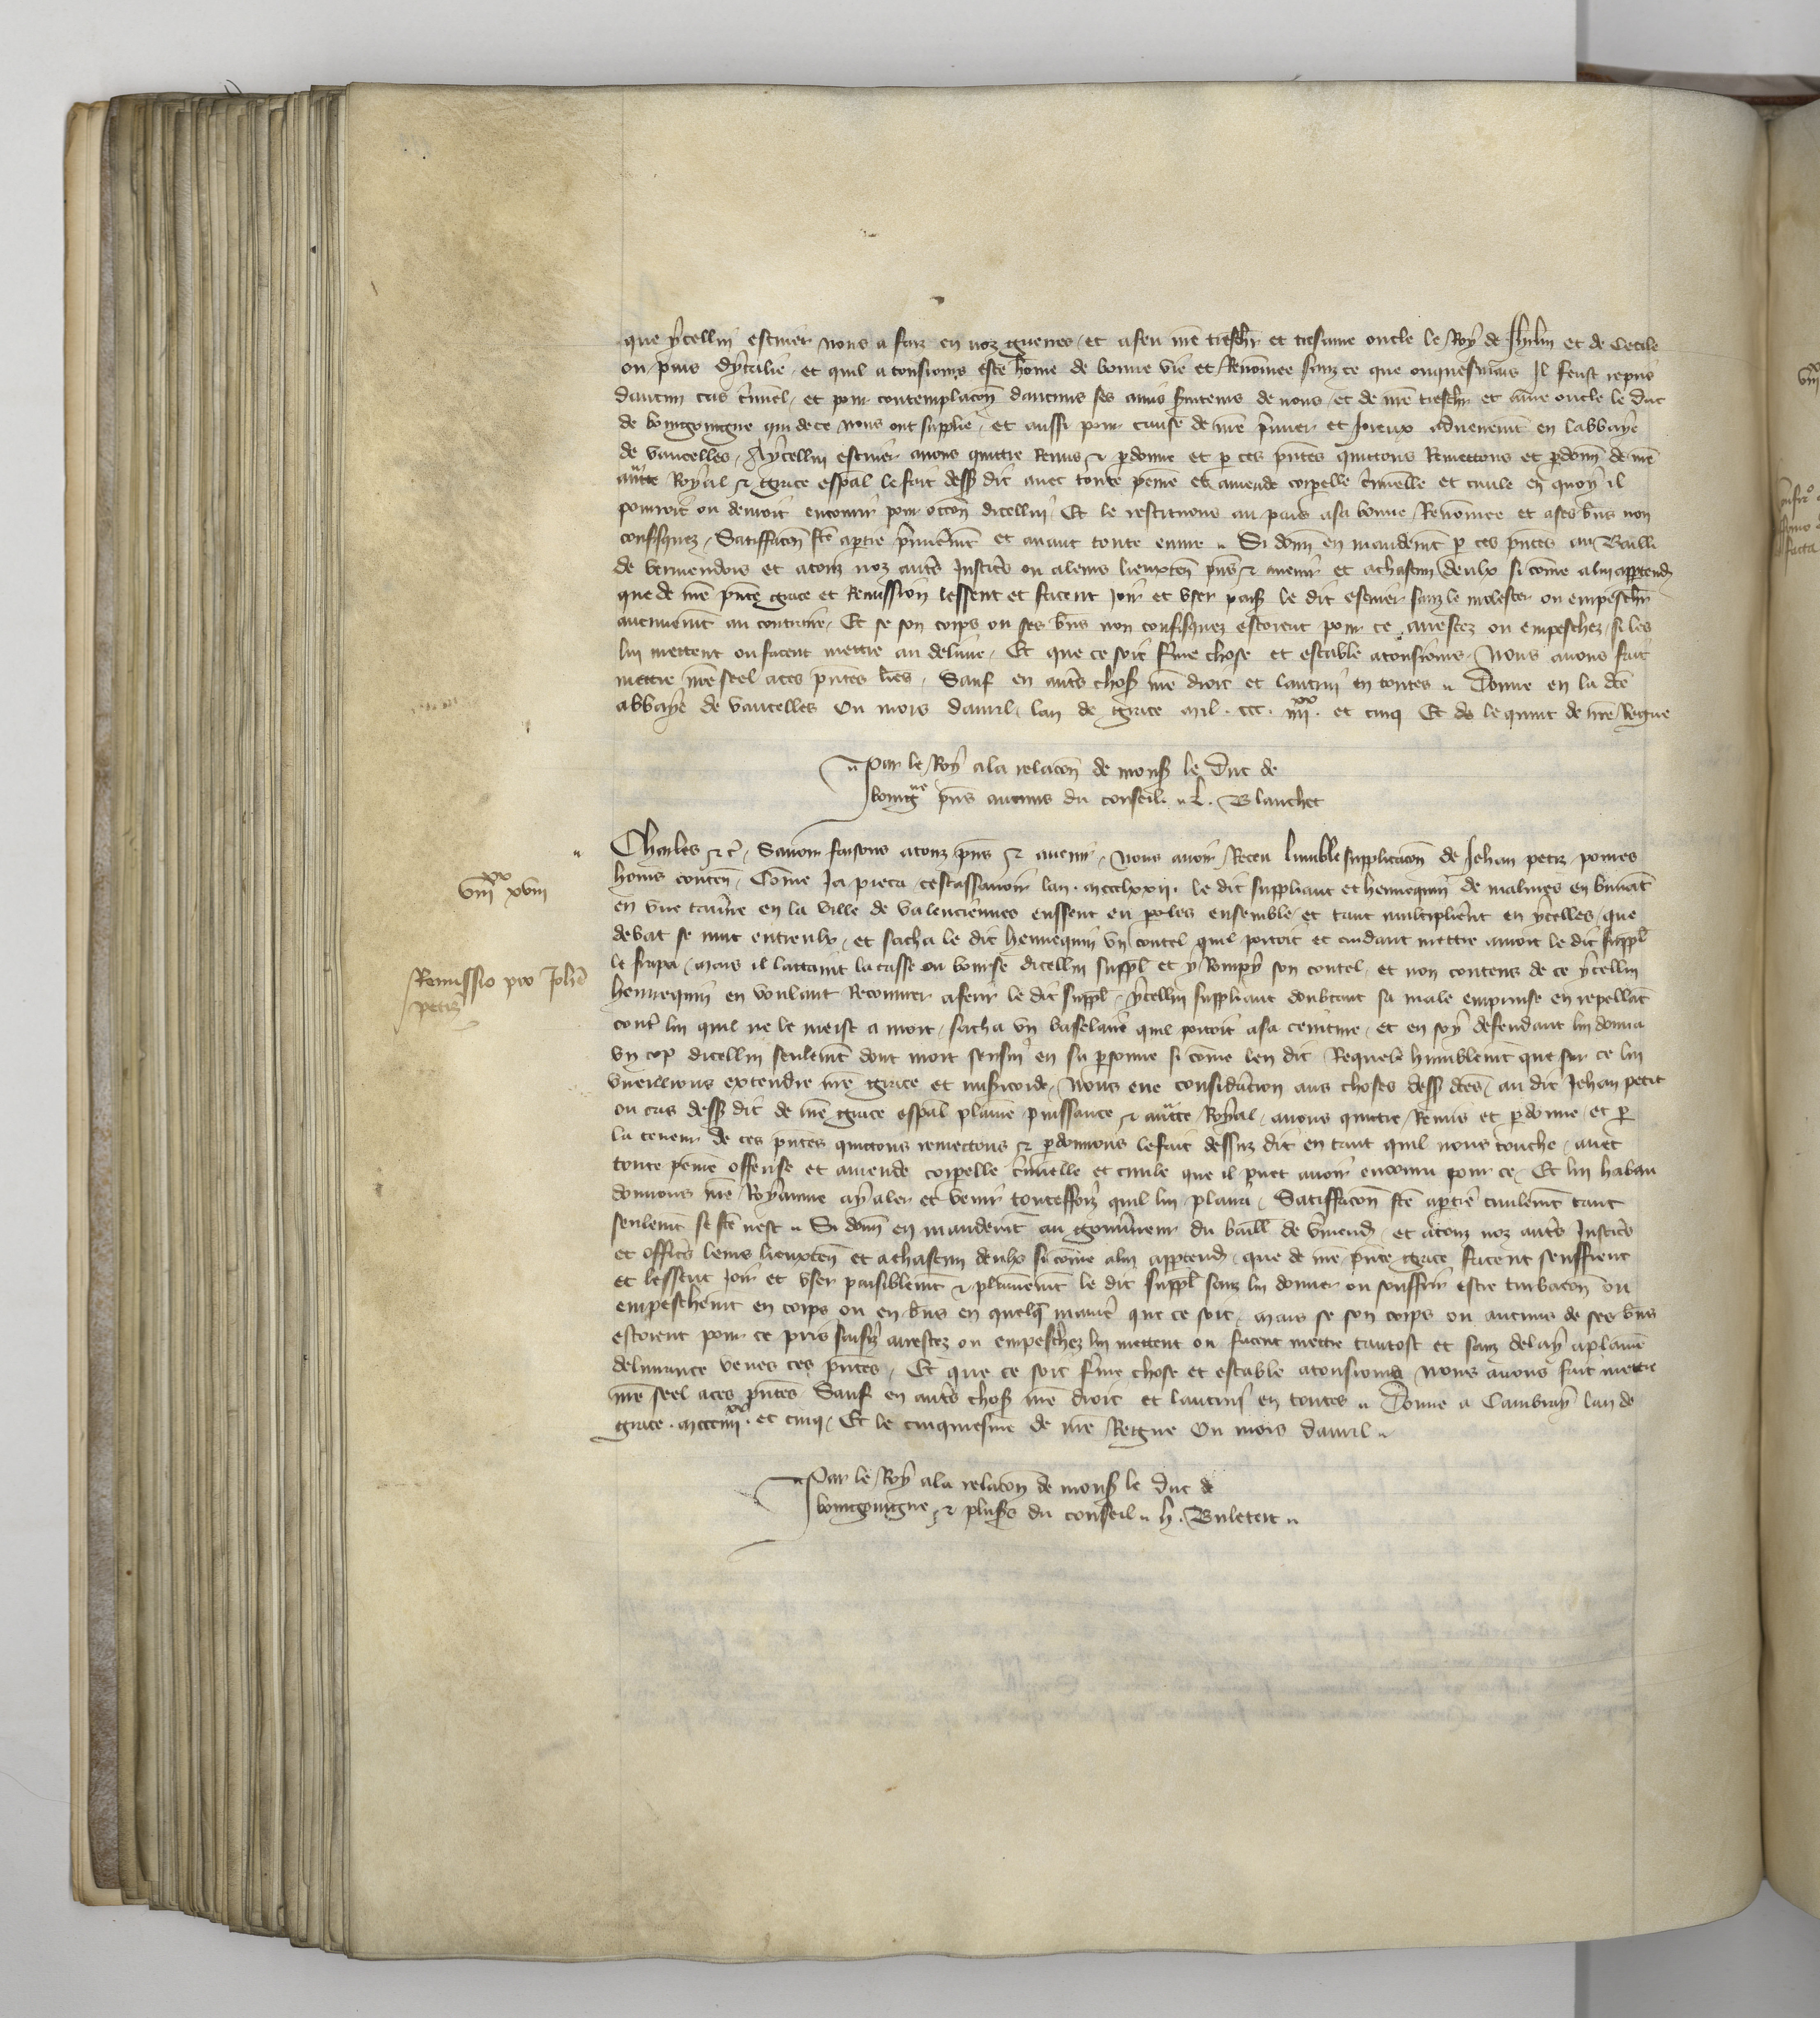 que ycellui escuier nous a faiz en noz guerres et a feu nre treschr et tresame oncle le Roy de Jhrlm et de Cecile
ou pais dytalie et quil a tousiours este home de bonne vie et Renomee sanz ce que onquesmais Il feust repris
daucun cas cimel et pour contemplacon daucuns ses amis seruiteurs de nous et de nre treschr et ame oncle le Duc
de bourgoingne qui de ce nous ont supplie et aussi pour cause de nre pimier et Joieux aduenemt en labbaye
de vaucelles Aycellui escuier auons quittie Remis et pdonne et p ces pntes quittons Remettons et pdonn de nre
aucte Royal et grace espal le fait dess dit auec toute peine et amende corporelle ciminelle et ciuile en quoy il
pourroit ou deuroit encourir pour occon dicellui Et le restituons au pais a sa bonne Renomee et a ses bns non
confisquez Satiffacon fte a ptie pmieremt et auant toute euure Si donn en mandemt p ces pntes au Bailli
de vermendois et a touz noz autes Justices ou a leurs lieuxten pns et auenir et a chascun deulx si come a lui apptendr
que de nre pnte grace et Remission lessent et facent Joir et vser pais le dit escuier sanz le molester ou empeschr
aucunemt au contraire Et se son corps ou ses bns non confisquez estoient pour ce arrestez ou empeschez si les
lui mettent ou facent mettre au deliure Et que ce soit ferme chose et estable a tousiours Nous auons fait
mettre nre seel a ces pntes lres Sauf en autes chos nre droit et lautrui en toutes Donne en la dce
abbaye de vaucelles Ou mois dauril lan de grace mil ccc iiii xx et cinq Et de le quint de nre Regne
Par le Roy a la relacon de mons le Duc de
bourgne pns aucuns du conseil L. Blanchet
viii xx xviii
Charles etc Sauoir faisons a touz pns et auenir Nous auoir Receu lumble supplicacon de Jehan petiz poures
homs conten Come Ja pieca cestassauoir lan mccclxxii le dit suppliant et hennequin de malines en buuat
en vne tauerne en la ville de valenciennes eussent eu poles ensemble et tant multiplierent en ycelles que
debat se mut entreulx et sacha le dit hennequin vn coutel quil portoit et cuidant mettre a mort le dit suppl
Remissio pro Johe
petiz
le frapa mais il lattaint la tasse ou bourse dicellui suppl et y Rompy son coutel et non contens de ce ycellui
hennequin en voulant Recouurer a ferir le dit suppl ycellui suppliant doubtant sa male emprinse en repellat
contre lui quil ne le meist a mort sacha vn baselaire quil portoit a sa ceinture et en soy defendant lui donna
vn cop dicellui seulemt dont mort sensui en sa psonne si come len dit Requerat humblemt que sur ce lui
vueillions extendre nre grace et misicorde Nous eue consideracion aus choses dess dces au dit Jehan petit
ou cas dess dit de nre grace espal plaine puissance et aucte Royal auons quittie Remis et pdonne et p
la teneur de ces pntes quittons remectons et pdonnons le fait dessuz dit en tant quil nous touche auec
toute peine offense et amende corpelle ciminelle et ciuile que il puet auoir encouru pour ce Et lui haban
donnons nre Royaume a y aler et venir touteffoiz quil lui plaira Satiffacon fte a ptie ciuilemt tant
seulemt se fte nest Si donn en mandemt au gouuerneur du baill de vermend et a touz noz autes Justices
et offices leurs lieuxten et a chascun deulx si come a lui apptendr que de nre pnte grace facent seuffrent
et lessent Joir et vser paisiblemt et plainemt le dit suppl sanz lui donner ou souffrir estre turbacon ou
empeschemt en corps ou en bns en quelq manie que ce soit mais se son corps ou aucuns de ses bns
estoient pour ce pris saisiz arrestez ou empeschez lui mettent ou facent mettre tantost et sanz delay a plaine
deliurance veues ces pntes Et que ce soit ferme chose et estable a tousiours Nous auons fait mettre
nre seel a ces pntes Sauf en autes chos nre droit et lautrui en toutes Donne a Cambray lan de
grace mccciiii xx et cinq Et le cinquiesme de nre Regne Ou mois dauril
Par le Roy a la relacon de mons le Duc de
bourgouigne et plusrs du conseil h. Buleteit